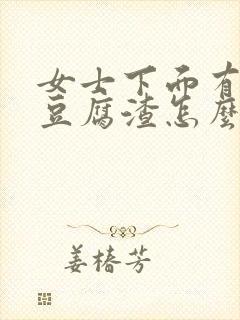 女士下而有
豆腐渣怎麼
姜椿芳